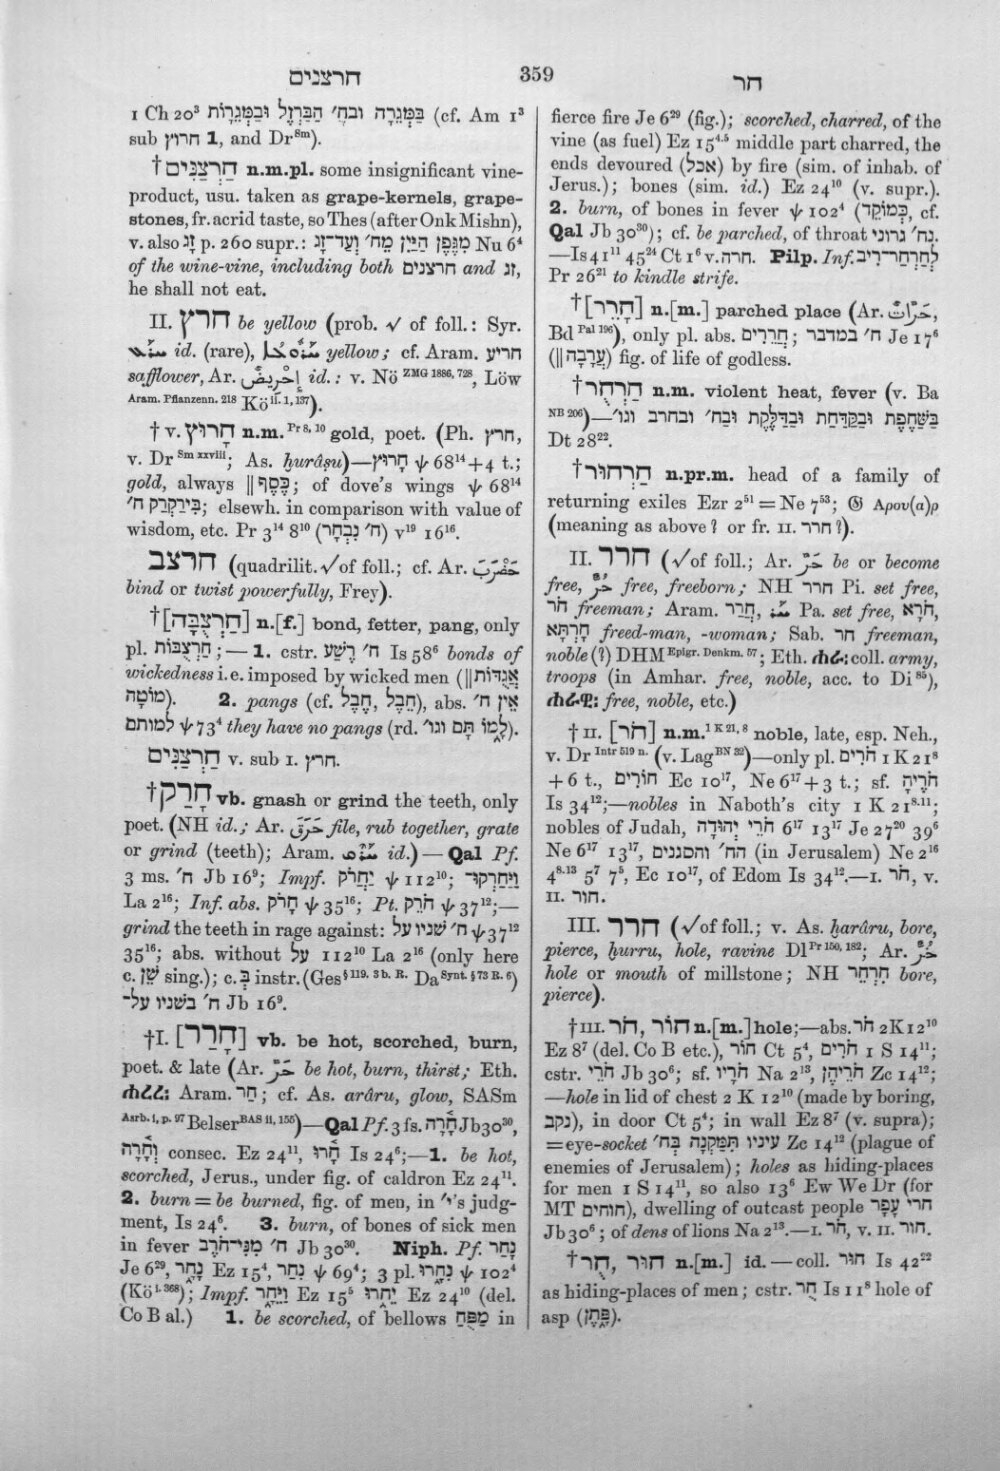 חרצנים
359
חר
1 Ch 20³ בַּמְּגֵרָה ובח׳ הַבַּרְזֶל וּבַמְּגֵרוֹת (cf. Am 1³
sub חרוץ 1, and Dr Sm).
†חַרְצַנִּים n.m.pl. some insignificant vine-
product, usu. taken as grape-kernels, grape-
stones, fr. acrid taste, so Thes (after Onk Mishn),
v. also זָג p. 260 supr.: מִגֶּפֶן הַיַּיִן מֵח׳ וְעַד־זָג Nu 6⁴
of the wine-vine, including both חרצנים and זג,
he shall not eat.
II. חרץ be yellow (prob. √ of foll.: Syr.
id. (rare), yellow; cf. Aram. חריע
safflower, Ar. إِحْرِيضٌ id.: v. Nö ZMG 1886, 728, Löw
Aram. Pflanzenn. 218 Kö ii. 1, 137).
†V. חָרוּץ n.m. Pr 8, 10 gold, poet. (Ph. חרץ,
v. Dr Sm xxviii; As. ḫurâṣu)—חָרוּץ ψ 68¹⁴+4 t.;
gold, always ‖ כֶּסֶף; of dove's wings ψ 68¹⁴
בִּירַקְרַק ח׳; elsewh. in comparison with value of
wisdom, etc. Pr 3¹⁴ 8¹⁰ (ח׳ נִבְחָר) v¹⁹ 16¹⁶.
חרצב (quadrilit. √ of foll.; cf. Ar.
bind or twist powerfully, Frey).
†[חַרְצֻבָּה] n.[f.] bond, fetter, pang, only
pl. חַרְצֻבּוֹת;—1. cstr. ח׳ רֶשַׁע Is 58⁶ bonds of
wickedness i.e. imposed by wicked men (‖ אֲגֻדּוֹת
מוֹטָה). 2. pangs (cf. חֵבֶל, חֶבֶל), abs. אֵין ח׳
למותם ψ 73⁴ they have no pangs (rd. לָמוֹ תָּם וגו׳).
חַרְצַנִּים v. sub I. חרץ.
†חָרַק vb. gnash or grind the teeth, only
poet. (NH id.; Ar. حَرَقَ file, rub together, grate
or grind (teeth); Aram. id.)—Qal Pf.
3 ms. ח׳ Jb 16⁹; Impf. יַחֲרֹק ψ 112¹⁰; וַיַּחַרְקוּ־
La 2¹⁶; Inf. abs. חָרֹק ψ 35¹⁶; Pt. חֹרֵק ψ 37¹²;—
grind the teeth in rage against: ח׳ שניו על ψ 37¹²
35¹⁶; abs. without על 112¹⁰ La 2¹⁶ (only here
c. שֵׁן sing.); c. בְּ instr. (Ges § 119. 3 b. R. Da Synt. § 73 R. 6)
ח׳ בשניו על־ Jb 16⁹.
†I. [חָרַר] vb. be hot, scorched, burn,
poet. & late (Ar. حَرَّ be hot, burn, thirst; Eth.
ሐረረ: Aram. חַר; cf. As. arâru, glow, SASm
Asrb. i, p. 97 Belser BAS ii, 155)—Qal Pf. 3 fs. חָ֫רָה Jb 30³⁰,
וְחָ֫רָה consec. Ez 24¹¹, חָ֫רוּ Is 24⁶;—1. be hot,
scorched, Jerus., under fig. of caldron Ez 24¹¹.
2. burn = be burned, fig. of men, in י׳'s judg-
ment, Is 24⁶. 3. burn, of bones of sick men
in fever ח׳ מִנִּי־חֹרֶב Jb 30³⁰. Niph. Pf. נָחַר
Je 6²⁹, נָחָר Ez 15⁴, נִחַר ψ 69⁴; 3 pl. נִחָרוּ ψ 102⁴
(Kö i. 368); Impf. וַיֵּחָר Ez 15⁵ יֵחָרוּ Ez 24¹⁰ (del.
Co B al.) 1. be scorched, of bellows מַפֻּחַ in
fierce fire Je 6²⁹ (fig.); scorched, charred, of the
vine (as fuel) Ez 15⁴·⁵ middle part charred, the
ends devoured (אכל) by fire (sim. of inhab. of
Jerus.); bones (sim. id.) Ez 24¹⁰ (v. supr.).
2. burn, of bones in fever ψ 102⁴ (כְּמוֹקֵד, cf.
Qal Jb 30³⁰); cf. be parched, of throat נח׳ גרוני
—Is 41¹¹ 45²⁴ Ct 1⁶ v. חרה. Pilp. Inf. לְחַרְחַר־רִיב
Pr 26²¹ to kindle strife.
†[חָרֵר] n.[m.] parched place (Ar. حَرَّات,
Bd Pal 196), only pl. abs. חֲרֵרִים; ח׳ במדבר Je 17⁶
(‖ עֲרָבָה) fig. of life of godless.
†חַרְחֻר n.m. violent heat, fever (v. Ba
NB 206)—בַּשַּׁחֶפֶת וּבַקַּדַּחַת וּבַדַּלֶּקֶת ובח׳ ובחרב וגו׳
Dt 28²².
†חַרְחוּר n.pr.m. head of a family of
returning exiles Ezr 2⁵¹ = Ne 7⁵³; 𝔊 Αρου(α)ρ
(meaning as above? or fr. II. חרר?).
II. חרר (√ of foll.; Ar. حَرَّ be or become
free, حُرٌّ free, freeborn; NH חרר Pi. set free,
חֹר freeman; Aram. חֲרַר, Pa. set free, חֹרָא,
חָרְתָא freed-man, -woman; Sab. חר freeman,
noble (?) DHM Epigr. Denkm. 57; Eth. ሐራ: coll. army,
troops (in Amhar. free, noble, acc. to Di 85),
free, noble, etc.)
†II. [חֹר] n.m. 1 K 21, 8 noble, late, esp. Neh.,
v. Dr Intr 519 n. (v. Lag BN 32)—only pl. חֹרִים 1 K 21⁸
+ 6 t., חוֹרִים Ec 10¹⁷, Ne 6¹⁷ + 3 t.; sf. חֹרֶיהָ
Is 34¹²;—nobles in Naboth's city 1 K 21⁸·¹¹;
nobles of Judah, חֹרֵי יְהוּדָה 6¹⁷ 13¹⁷ Je 27²⁰ 39⁶
Ne 6¹⁷ 13¹⁷, הח׳ והסגנים (in Jerusalem) Ne 2¹⁶
4⁸·¹³ 5⁷ 7⁵, Ec 10¹⁷, of Edom Is 34¹².—I. חֹר, v.
II. חור.
III. חרר (√ of foll.; v. As. ḫarâru, bore,
pierce, ḫurru, hole, ravine Dl Pr 150, 182; Ar. خُرٌّ
hole or mouth of millstone; NH חִרְחֵר bore,
pierce).
†III. חֹר, חוֹר n.[m.] hole;—abs. חֹר 2 K 12¹⁰
Ez 8⁷ (del. Co B etc.), חוֹר Ct 5⁴, חֹרִים 1 S 14¹¹;
cstr. חֹרֵי Jb 30⁶; sf. חֹרָיו Na 2¹³, חֹרֵיהֶן Zc 14¹²;
—hole in lid of chest 2 K 12¹⁰ (made by boring,
נקב), in door Ct 5⁴; in wall Ez 8⁷ (v. supra);
= eye-socket עיניו תִּמַּקְנָה בְּח׳ Zc 14¹² (plague of
enemies of Jerusalem); holes as hiding-places
for men 1 S 14¹¹, so also 13⁶ Ew We Dr (for
MT חוחים), dwelling of outcast people חרי עָפָר
Jb 30⁶; of dens of lions Na 2¹³.—I. חֹר, v. II. חור.
†חוּר, חֻר n.[m.] id.—coll. חור Is 42²²
as hiding-places of men; cstr. חֻר Is 11⁸ hole of
asp (פָּתֶן).